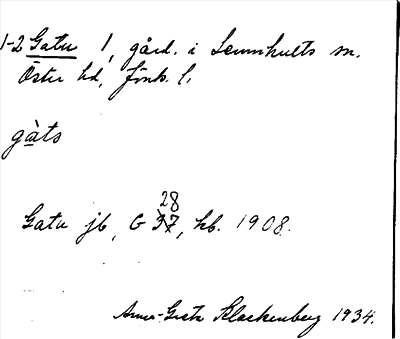 1-2 Gatu 1, gård. i Lemnhults sn.
Östra hd, Jönk. l.
gàts
28
Gatu jb, G 37, kb. 1908.
Anna-Greta Klackenberg 1934.